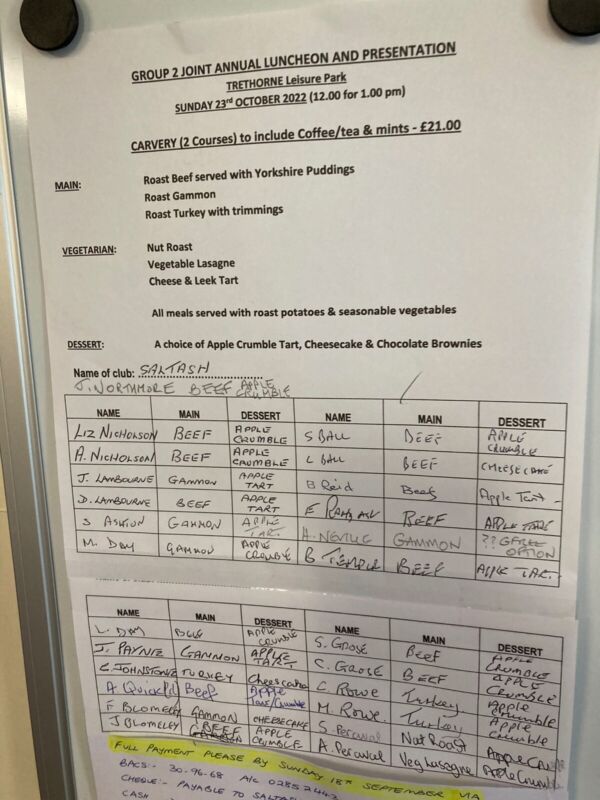 GROUP 2 JOINT ANNUAL LUNCHEON AND PRESENTATION
TRETHORNE Leisure Park
SUNDAY 23rd OCTOBER 2022 (12.00 for 1.00 pm)
CARVERY (2 Courses) to include Coffee/tea & mints - £21.00
MAIN: Roast Beef served with Yorkshire Puddings
Roast Gammon
Roast Turkey with trimmings
VEGETARIAN: Nut Roast
Vegetable Lasagne
Cheese & Leek Tart
All meals served with roast potatoes & seasonable vegetables
DESSERT: A choice of Apple Crumble Tart, Cheesecake & Chocolate Brownies
Name of club: SALTASH
J. NORTHMORE BEEF APPLE CRUMBLE
NAME MAIN DESSERT NAME MAIN DESSERT
LIZ NICHOLSON BEEF APPLE CRUMBLE S BALL BEEF APPLE CRUMBLE
A. NICHOLSON BEEF APPLE CRUMBLE L BALL BEEF CHEESE CAKE
J. LAMBOURNE GAMMON APPLE TART B Reid Beef Apple Tart
D. LAMBOURNE BEEF APPLE TART E BEEF APPLE TART
S ASHTON GAMMON APPLE TART. A. NEVILLE GAMMON ?? G FREE OPTION
M. DAY GAMMON APPLE CRUMBLE B. TEMPLE BEEF APPLE TART.
NAME MAIN DESSERT NAME MAIN DESSERT
L. DAY APPLE CRUMBLE S. GROSE BEEF APPLE CRUMBLE
J. PAYNE GAMMON APPLE TART C. GROSE BEEF APPLE CRUMBLE
C. JOHNSTONE TURKEY Cheesecake C. ROWE Turkey Apple Crumble
A Beef Apple Tart/Crumble M. ROWE. Turkey Apple Crumble
F BLOMELEY GAMMON CHEESECAKE S. Percival Nut Roast Apple Crumble
J BLOMELEY BEEF APPLE CRUMBLE A. Percival Veg Lasagne Apple Crumble
FULL PAYMENT PLEASE BY SUNDAY 18th SEPTEMBER VIA
BACS:- 30-96-68 A/C
CHEQUE:- PAYABLE TO
CASH